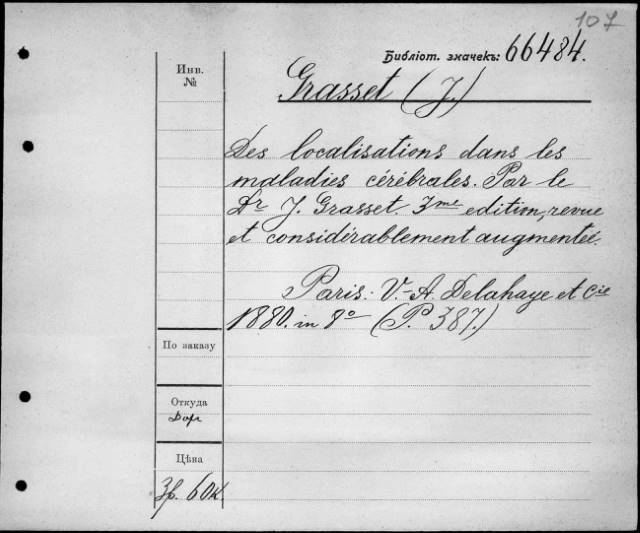 107
Библіот. значекъ: 66484.
Инв.
№
Grasset (J.)
Des localisations dans les
maladies cérébrales. Par le
Dr J. Grasset. 3me edition, revue
et considérablement augmentée.
Paris. V.-A. Delahaye et Cie
1880. in 8o (P. 387.)
По заказу
Откуда
Дар
Цѣна
3р. 60к